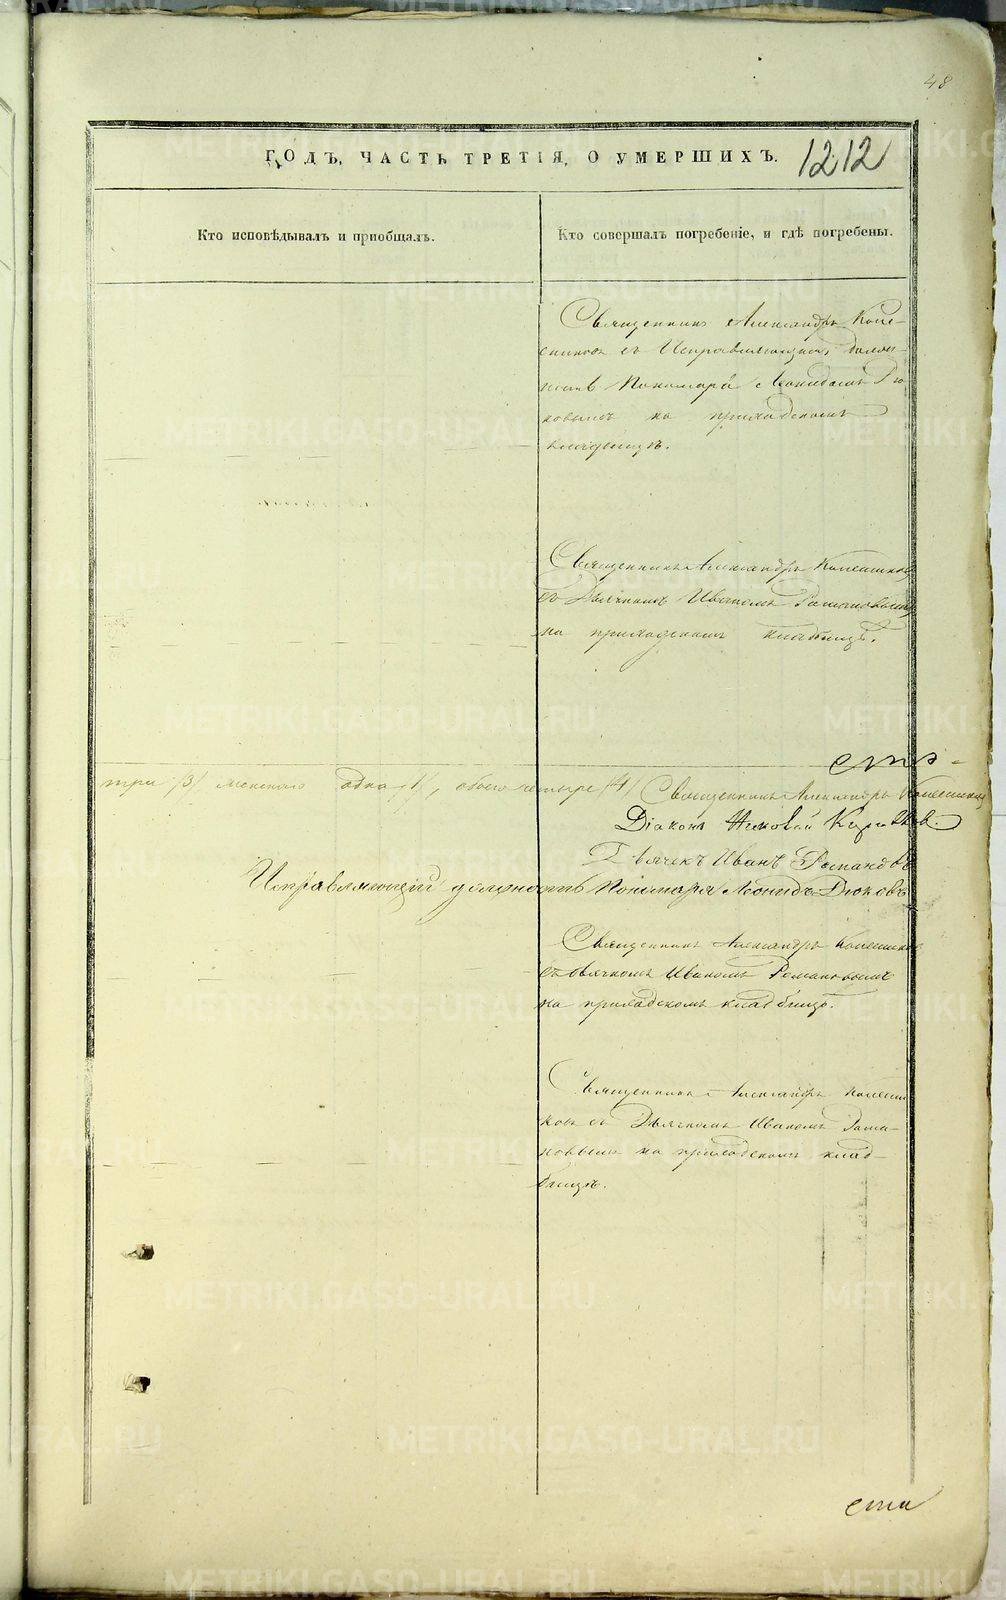 48
ГОДЪ, ЧАСТЬ ТРЕТІЯ, О УМЕРШИХЪ. 1212
Кто исповѣдывалъ и пріобщалъ.
Кто совершалъ погребеніе, и гдѣ погребены.
Священникъ Александръ Коле-
сниковъ съ Исправляющимъ долж-
ность Пономаря Леонидомъ Дю-
ковымъ на приходскомъ
кладбищѣ.
Священникъ Александръ Колесниковъ
съ Дьячкомъ Иваномъ Романовымъ
на приходскомъ кладбищѣ.
ста-
три /3/ женскаго одна /1/, обоего четыре /4/ Священникъ Александръ Колесниковъ
Діаконъ
Дьячекъ Иванъ Романовъ
Исправляющій должность Пономаря Леонидъ Дюковъ
Священникъ Александръ Колесников
съ дьячкомъ Иваномъ Романовымъ
на приходскомъ кладбищѣ.
Священникъ Александръ Колесни
ковъ съ Дьячкомъ Иваномъ Рома-
новымъ на приходскомъ клад-
бищѣ.
METRIKI.GASO-URAL.RU